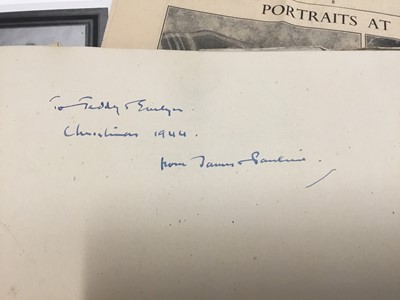 PORTRAITS AT
To Teddy & Evelyn.
Christmas 1944.
from James & Pauline.